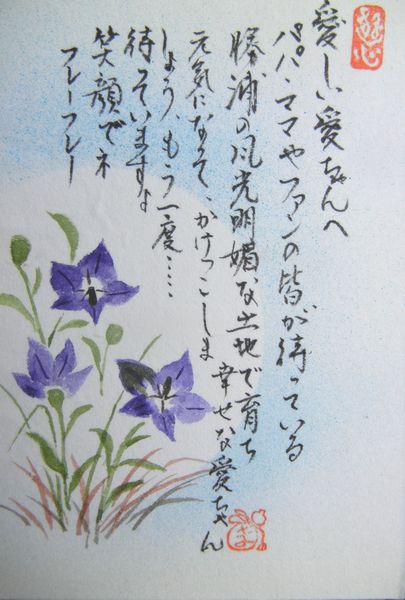 愛しい愛ちゃんへ
パパ・ママやファンの皆が待っている
勝浦の風光明媚な土地で育ち
幸せな愛ちゃん
元気になって かけっこしま
しょう、もう一度……
待っていますよ
笑顔でネ
フレーフレー